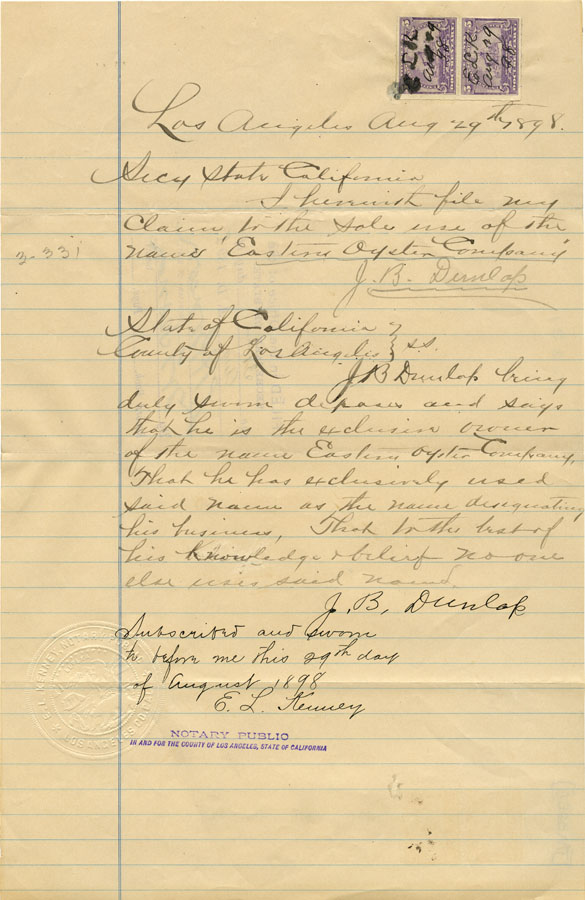 E L K
Aug 29
98
E. L. K.
Aug 29
98
Los Angeles Aug 29th 1898.
Secy State California
I herewith file my
Claim to the sole use of the
name "Eastern Oyster Company"
3-331
J. B. Dunlap
State of California }
County of Los Angeles } s.s.
J B Dunlap being
duly sworn deposes and says
that he is the exclusive owner
of the name Eastern Oyster Company,
That he has exclusively used
said name as the name designating
his business, That to the best of
his knowledge & belief no one
else uses said name.
J. B. Dunlap
Subscribed and sworn
to before me this 29th day
of August 1898
E. L. Kenney
NOTARY PUBLIC
IN AND FOR THE COUNTY OF LOS ANGELES, STATE OF CALIFORNIA